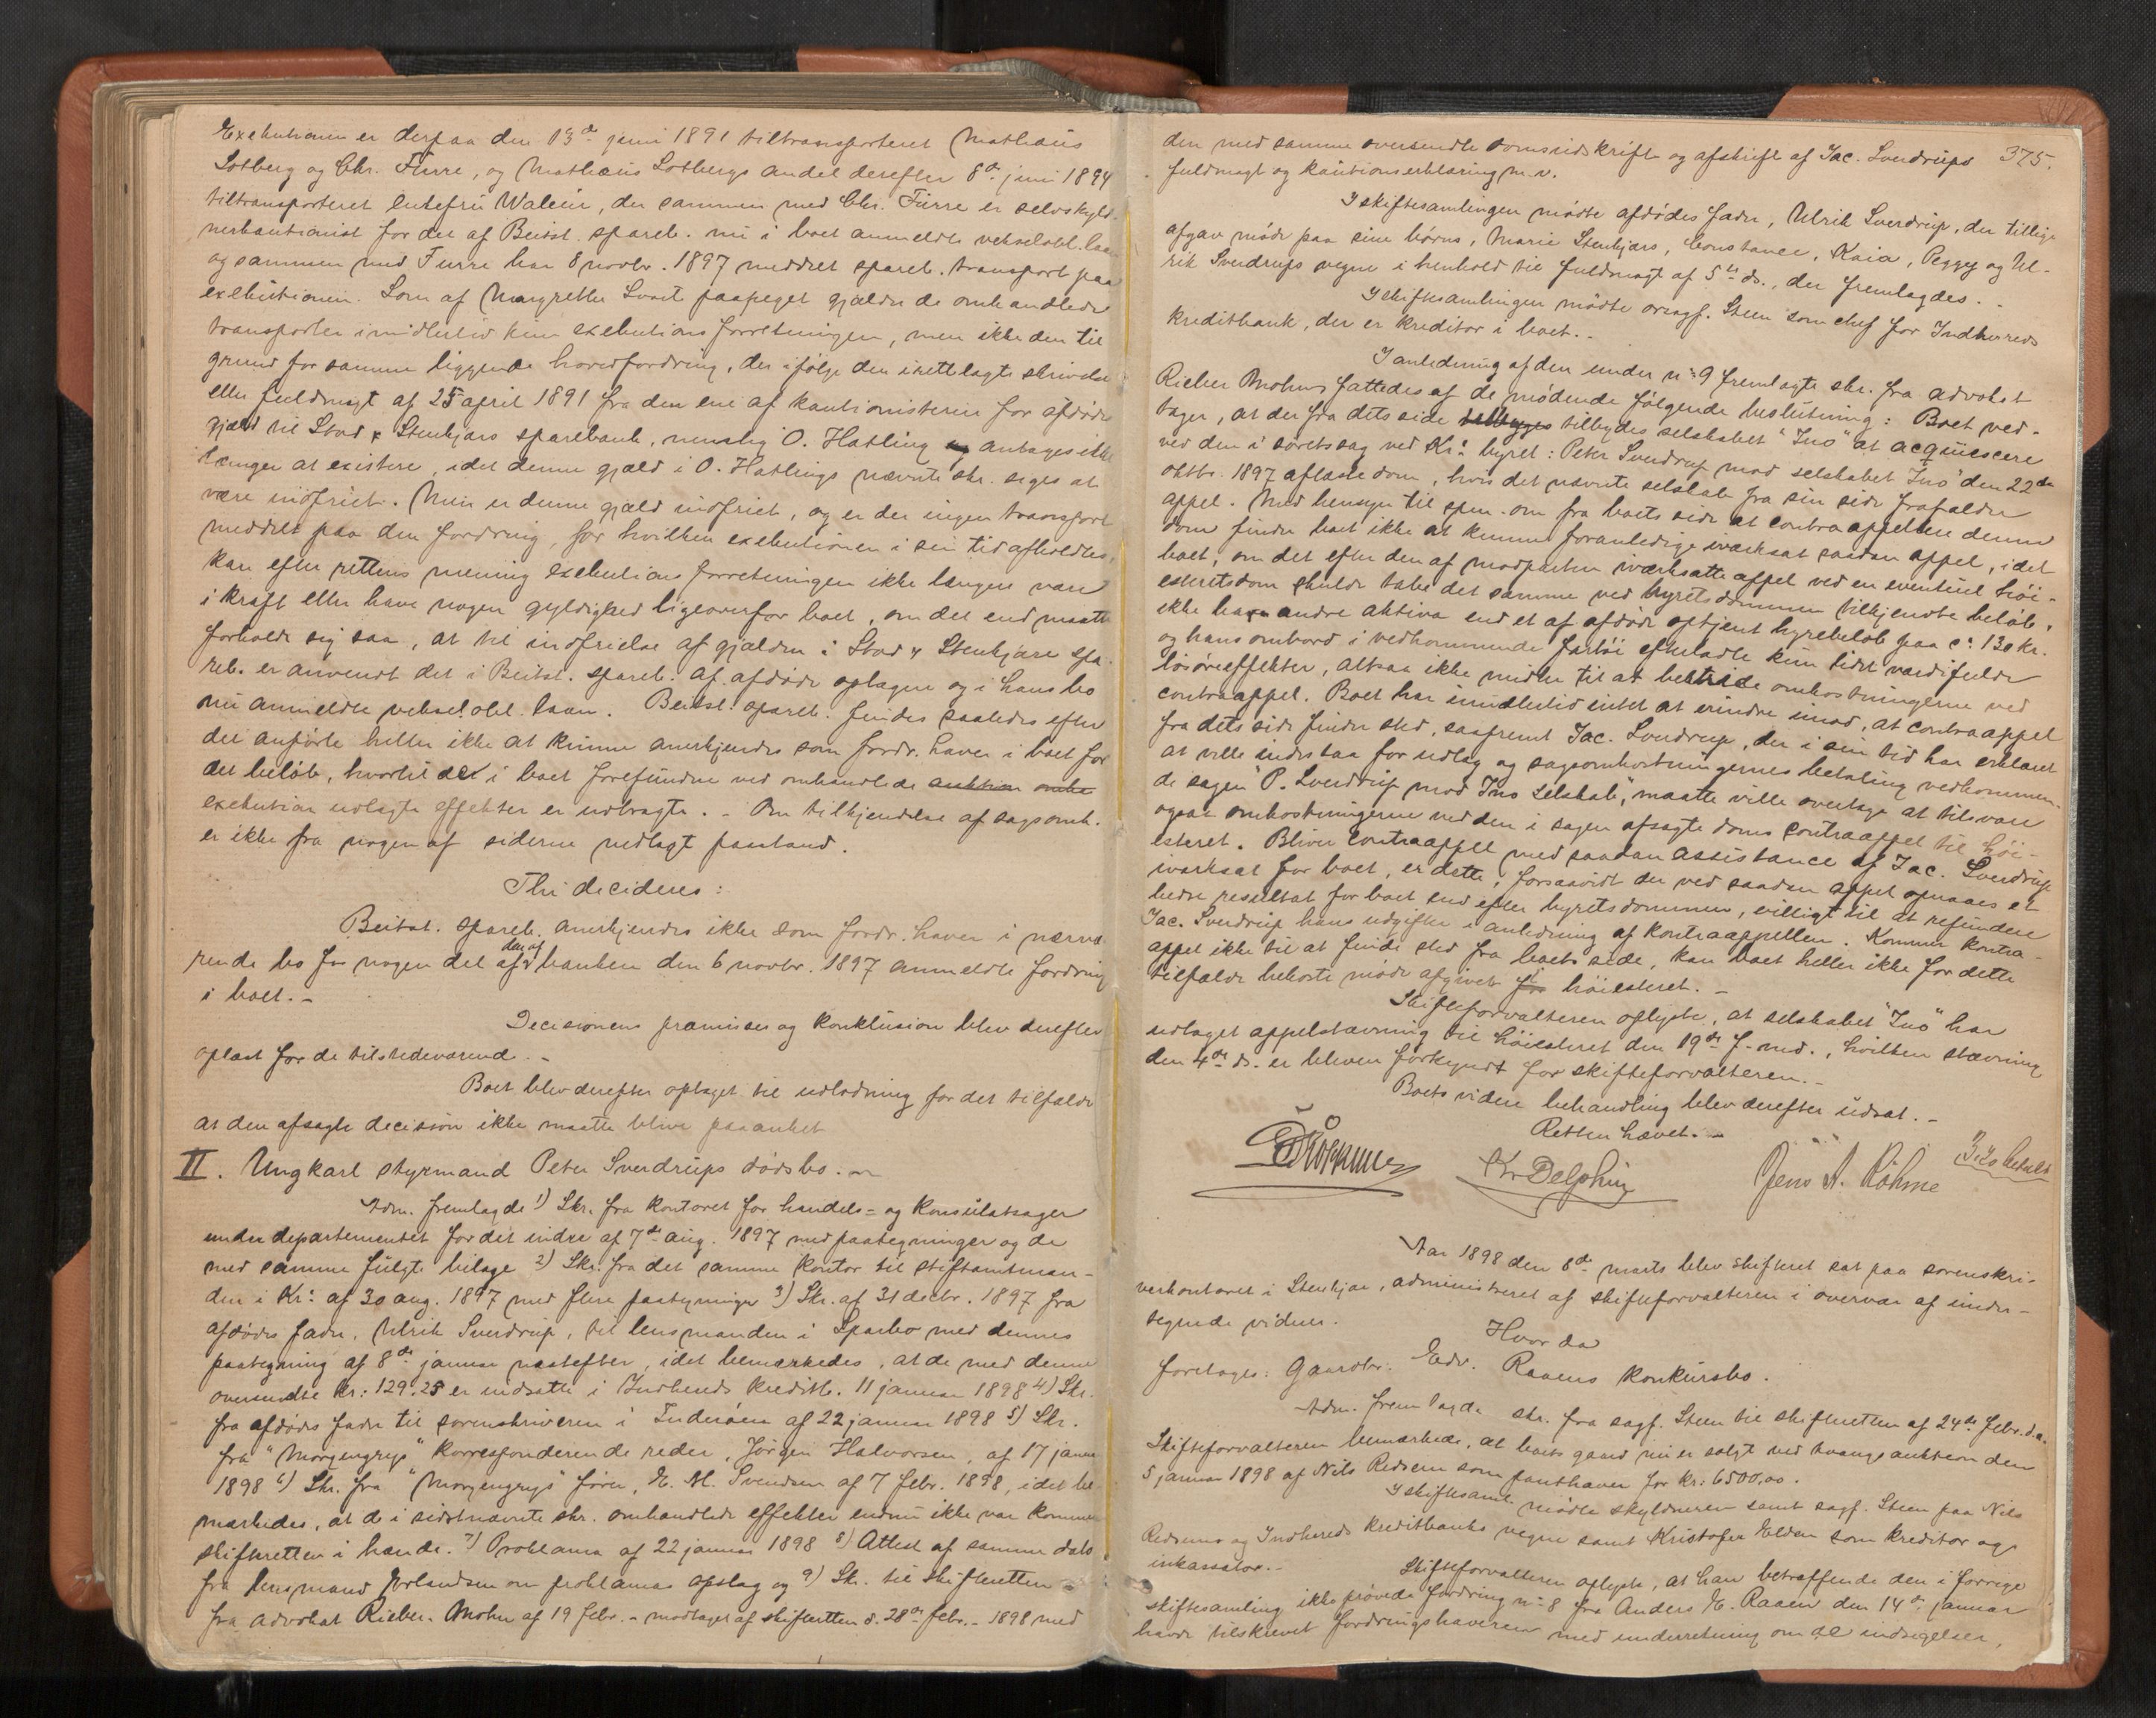 Exekutionen er derpaa den 13de juni 1891 tiltransporteret Mathæus
Sotberg og Chr. Furre, og Mathæus Sotbergs andel derefter 8de juni 1894
tiltransporteret enkefru Waleur, der sammen med Chr. Furre er selvskyld-
nerkautionist for det af Beitst. spareb. nu i boet anmeldte vekselobl. laan
og sammen med Furre har 8 novbr. 1897 meddelt spareb. transport paa
exekutionen. Som af Margrethe Svart paapeget gjælder de omhandlede
transporter imidlertid kun exekutionsforretningen, men ikke den til
grund for samme liggende hovedfordring, der ifølge den i rettelagte skrivelse
eller fuldmagt af 25 april 1891 fra den ene af kautionisterne for afdødes
gjæld til Stod & Stenkjærs sparebank, nemlig O. Hatling antages ikke
længer at existere, idet denne gjæld i O. Hatlings nævnte skr. siges at
være indfriet. Men er denne gjæld indfriet, og er der ingen transport
meddelt paa den fordring, for hvilken exekutionen i sin tid afholdtes,
kan efter rettens mening exekutionsforretningen ikke længere være
i kraft eller have nogen gyldighed ligeoverfor boet, om det end maatte
forholde sig saa, at til indfrielse af gjælden i Stod & Stenkjærs spa-
reb. er anvendt det i Beitst. spareb. af afdøde optagne og i hans bo
nu anmeldte vekselobl. laan. Beitst. spareb. findes saaledes efter
det anførte heller ikke at kunne anerkjendes som fordr. haver i boet for
det beløb, hvortil de i boet forefundne ved omhandlede auktion omhe
exekution udlagte effekter er udbragte. - Om tilkjendelse af sagsomk.
er ikke fra nogen af siderne nedlagt paastand.
Thi decideres:
Beitst. spareb. anerkjendes ikke som fordr. haver i nærvæ-
rende bo for nogen del af den af banken den 6 novbr. 1897 anmeldte fordring
i boet. -
Decisionens præmisser og konklusion blev derefter
oplæst for de tilstedeværende. -
Boet blev derefter optaget til udlodning for det tilfælde
at den afsagte decision ikke maatte blive paaanket
II. Ungkarl styrmand Peter Sverdrups dødsbo. -
Adm. fremlagde 1) Skr. fra kontoret for handels= og konsulatsager
under departementet for det indre af 7de aug. 1897 med paategninger og de
med samme fulgte bilage 2) Skr. fra det samme kontor til stiftamtman-
den i Kra af 30 aug. 1897 med flere paategninger 3) Skr. af 31 decbr. 1897 fra
afdødes fader, Ulrik Sverdrup, til lensmanden i Sparbo med dennes
paategning af 8de januar næstefter, idet bemærkedes, at de med denne
oversendte kr: 129.25 er indsatte i Indhereds kreditb. 11 januar 1898 4) Skr.
fra afdødes fader til sorenskriveren i Inderøen af 22 januar 1898 5) Skr.
fra "Morgengrys" korresponderende reder, Jørgen Halvorsen, af 17 januar
1898 6) Skr. fra "Morgengrys" fører, E. M. Svendsen af 7 febr. 1898, idet be-
mærkedes, at de i sidstnævnte skr. omhandlede effekter endnu ikke var kommen
skifteretten i hænde. 7) Proklama af 22 januar 1898 8) Attest af samme dato
fra lensmand Erlandsen om proklamas opslag og 9) Skr. til skifteretten
fra advokat Rieber-Mohn af 19 febr. - modtaget af skifteretten d. 28de febr. - 1898 med
375.
den med samme oversendte domsudskrift og afskrift af Jac. Sverdrups
fuldmagt og kautionserklæring m. v.
I skiftesamlingen mødte afdødes fader, Ulrik Sverdrup, der tillige
afgav møde paa sine børns, Marie Stenkjærs, Constance, Kaia, Peggy og Ul-
rik Sverdrups vegne i henhold til fuldmagt af 5te ds., der fremlagdes. -
I skiftesamlingen mødte ovsagf. Steen som chef for Indhereds
kreditbank, der er kreditor i boet. -
I anledning af den under no 9 fremlagte skr. fra advokat
Rieber Mohn fattedes af de mødende følgende beslutning: Boet ved-
tager, at der fra dets side tilbydes selskabet "Ino" at acquiescere
ved den i søretssag ved Kra byret: Peter Sverdrup mod selskabet "Ino" den 22de
oktbr. 1897 afsagte dom, hvis det nævnte selskab fra sin side frafalder
appel. Med hensyn til spm. om fra boets side at contraappellere denne
dom finder boet ikke at kunne foranledige iværksat saadan appel, idet
boet, om det efter den af modparten iværksatte appel ved en eventuel høi-
esteretsdom skulde tabe det samme ved byretsdommen tilkjendte beløb,
ikke have andre aktiva end et af afdøde optjent hyrebeløb paa ca 130 kr.
og hans ombord i vedkommende fartøi efterladte kun lidet værdifulde
løsøreeffekter, altsaa ikke midler til at bestride omkostningerne ved
contraappel. Boet har imidlertid intet at erindre imod, at contraappel
fra dets side finder sted, saafremt Jac. Sverdrup, der i sin tid har erklæret
at ville indestaa for udlæg og sagsomkostningernes betaling vedkommen-
de sagen "P. Sverdrup mod Inos selskab", maatte ville overtage at tilsvare
ogsaa omkostningerne ved den i sagen afsagte doms contraappel til høi-
esteret. Bliver contraappel med saadan assistance af Jac. Sverdrup
iværksat for boet, er dette, forsaavidt der ved saadan appel opnaaes et
bedre resultat for boet end efter byretsdommen, villigt til at refundere
Jac. Sverdrup hans udgifter i anledning af kontraappellen. Kommer kontra-
appel ikke til at finde sted fra boets side, kan boet heller ikke for dette
tilfælde bekoste møde afgivet i høiesteret. -
Skifteforvalteren oplyste, at selskabet "Ino" har
udtaget appelstævning til høiesteret den 19de f. md., hvilken stævning
den 4de ds. er bleven forkyndt for skifteforvalteren. -
Boets videre behandling blev derefter udsat. -
Retten hævet. -
K. Delphin
Jens A. Røhme
3.20 betalt
Aar 1898 den 8de marts blev skifteret sat paa sorenskri-
verkontoret i Stenkjær, administreret af skifteforvalteren i overvær af under-
tegnede vidner.
Hvor da
foretoges: Gaardbr. Edv. Raaens konkursbo.
Adm. fremlagde skr. fra sagf. Steen til skifteretten af 24de febr. d. a.
Skifteforvalteren bemærkede, at boets gaard nu er solgt ved tvangsauktion den
5 januar 1898 af Nils Redsem som panthaver for kr: 6500,00.
I skiftesaml. mødte skyldneren samt sagf. Steen paa Nils
Redsems og Indhereds kreditbanks vegne samt Kristofer Elden som kreditor og
inkassator. -
Skifteforvalteren oplyste, at han betræffende den i forrige
skiftesamling ikke prøvede fordring no 8 fra Anders E. Raaen den 14de januar
havde tilskrevet fordringshaveren med underretning om de indsigelser,